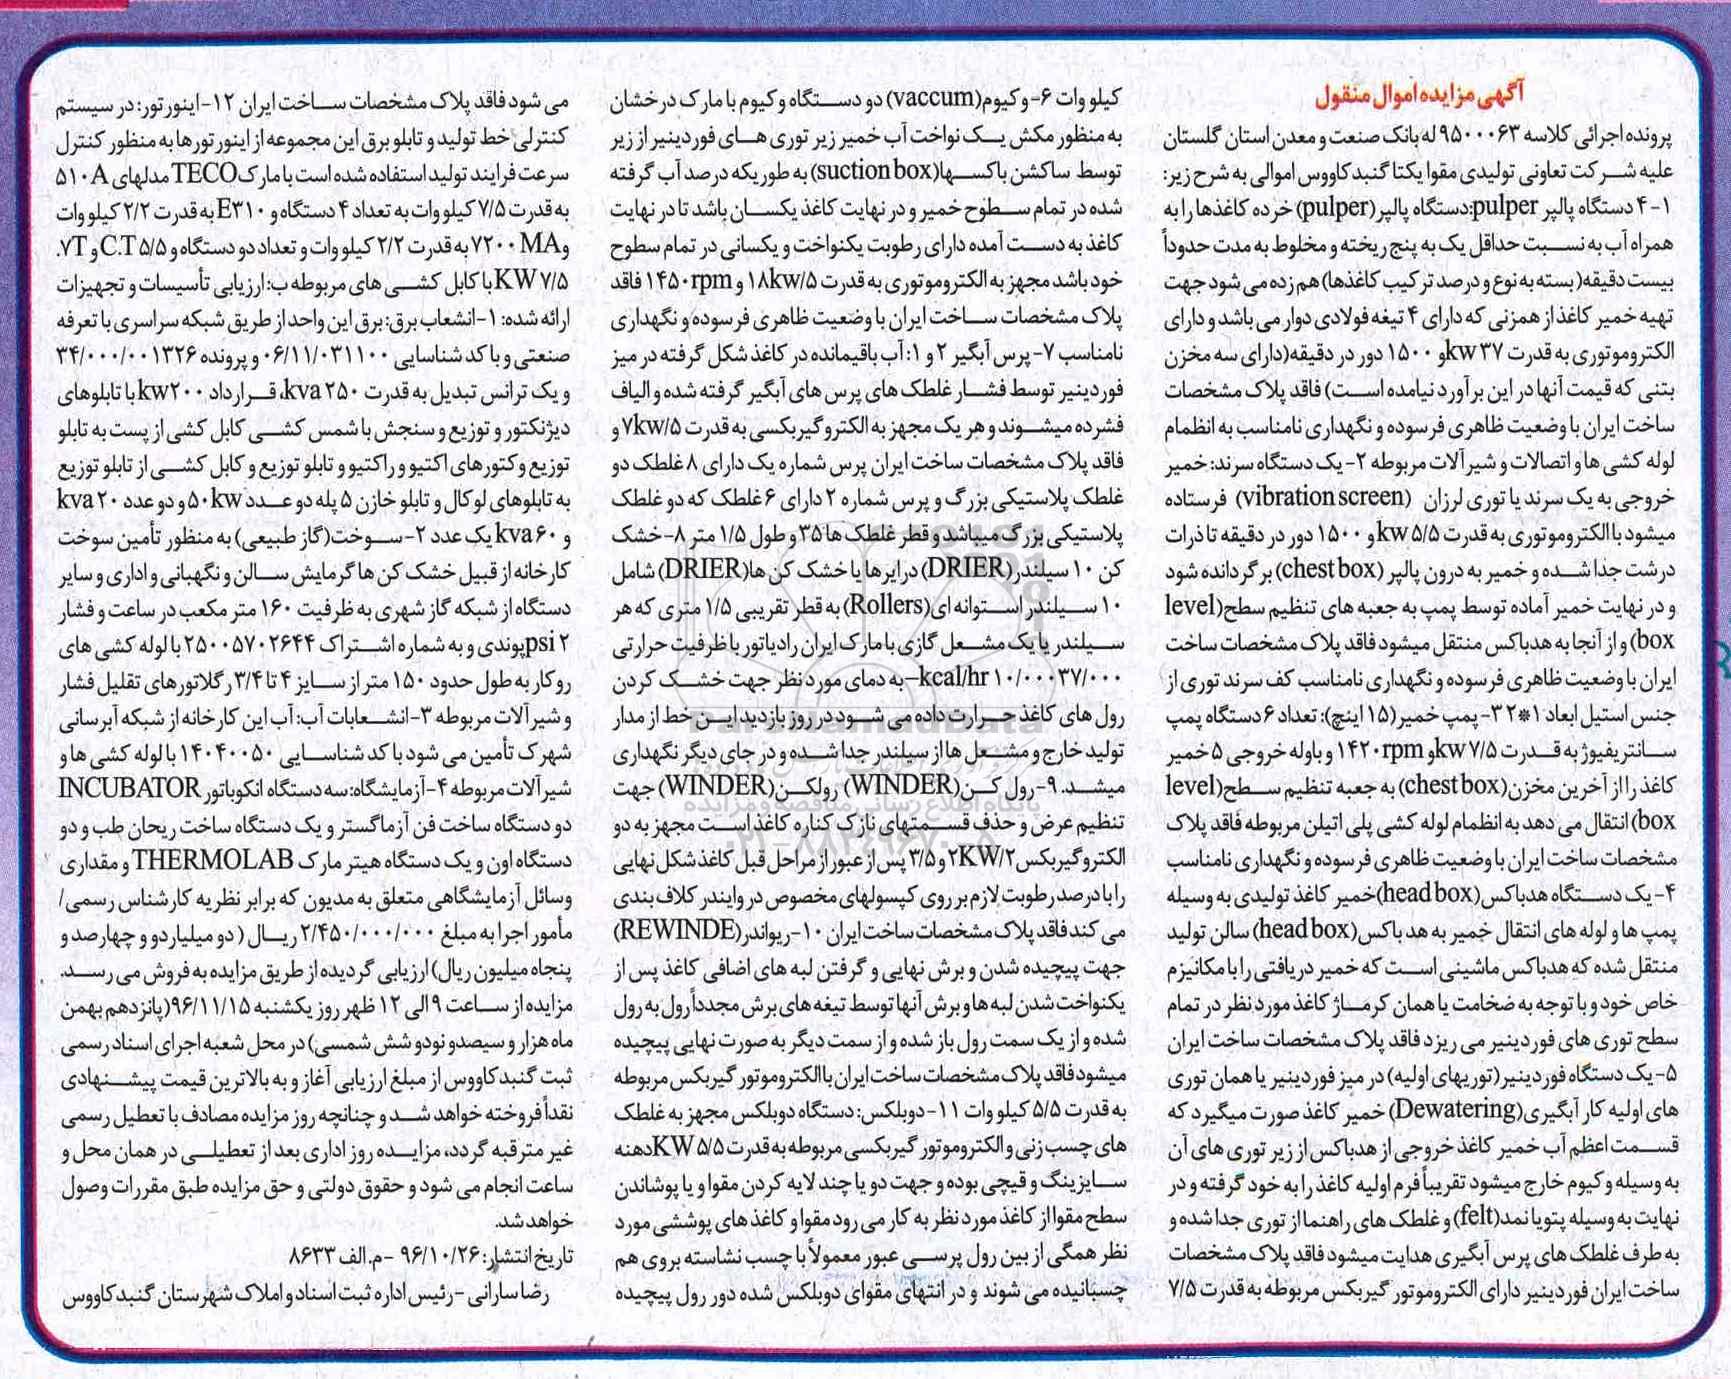 آگهی مزایده اموال منقول
پرونده اجرائی کلاسه ۹۵۰۰۰۶۳ له بانک صنعت و معدن استان گلستان
علیه شرکت تعاونی تولیدی مقوا یکتا گنبد کاووس اموالی به شرح زیر:
۱-۴ دستگاه پالپر pulper:دستگاه پالپر(pulper) خرده کاغذها را به
همراه آب به نسبت حداقل یک به پنج ریخته و مخلوط به مدت حدوداً
بیست دقیقه( بسته به نوع و درصد ترکیب کاغذها) هم زده می شود جهت
تهیه خمیر کاغذ از همزنی که دارای ۴ تیغه فولادی دوار می باشد و دارای
الکتروموتوری به قدرت ۳۷ kwو ۱۵۰۰ دور در دقیقه(دارای سه مخزن
بتنی که قیمت آنها در این برآورد نیامده است) فاقد پلاک مشخصات
ساخت ایران با وضعیت ظاهری فرسوده و نگهداری نامناسب به انظمام
لوله کشی ها و اتصالات و شیرآلات مربوطه ۲- یک دستگاه سرند: خمیر
خروجی به یک سرند یا توری لرزان (vibration screen) فرستاده
میشود با الکتروموتوری به قدرت ۵/۵ kwو ۱۵۰۰ دور در دقیقه تا ذرات
درشت جدا شده و خمیر به درون پالپر (chest box) برگردانده شود
و در نهایت خمیر آماده توسط پمپ به جعبه های تنظیم سطح(level
box) و از آنجا به هدباکس منتقل میشود فاقد پلاک مشخصات ساخت
ایران با وضعیت ظاهری فرسوده و نگهداری نامناسب کف سرند توری از
جنس استیل ابعاد ۱*۲ ۳- پمپ خمیر(۱۵ اینچ): تعداد ۶ دستگاه پمپ
سانتریفیوژ به قدرت ۷/۵ kwو ۱۴۲۰rpm و باوله خروجی ۵ خمیر
کاغذ را از آخرین مخزن(chest box) به جعبه تنظیم سطح(level
box) انتقال می دهد به انظمام لوله کشی پلی اتیلن مربوطه فاقد پلاک
مشخصات ساخت ایران با وضعیت ظاهری فرسوده و نگهداری نامناسب
۴- یک دستگاه هدباکس(head box)خمیر کاغذ تولیدی به وسیله
پمپ ها و لوله های انتقال خمیر به هد باکس(head box) سالن تولید
منتقل شده که هدباکس ماشینی است که خمیر دریافتی را با مکانیزم
خاص خود و با توجه به ضخامت یا همان کرماژ کاغذ مورد نظر در تمام
سطح توری های فوردینیر می ریزد فاقد پلاک مشخصات ساخت ایران
۵- یک دستگاه فوردینیر(توریهای اولیه) در میز فوردینیر یا همان توری
های اولیه کار آبگیری(Dewatering) خمیر کاغذ صورت میگیرد که
قسمت اعظم آب خمیر کاغذ خروجی از هدباکس از زیر توری های آن
به وسیله وکیوم خارج میشود تقریباً فرم اولیه کاغذ را به خود گرفته و در
نهایت به وسیله پتو یا نمد(felt) و غلطک های راهنما از توری جدا شده و
به طرف غلطک های پرس آبگیری هدایت میشود فاقد پلاک مشخصات
ساخت ایران فوردینیر دارای الکتروموتور گیربکس مربوطه به قدرت ۷/۵
کیلو وات ۶- وکیوم(vaccum) دو دستگاه وکیوم با مارک درخشان
به منظور مکش یک نواخت آب خمیر زیر توری های فوردینیر از زیر
توسط ساکشن باکسها(suction box) به طوریکه درصد آب گرفته
شده در تمام سطوح خمیر و در نهایت کاغذ یکسان باشد تا در نهایت
کاغذ به دست آمده دارای رطوبت یکنواخت و یکسانی در تمام سطوح
خود باشد مجهز به الکتروموتوری به قدرت ۱۸kw/۵ و ۱۴۵۰rpm فاقد
پلاک مشخصات ساخت ایران با وضعیت ظاهری فرسوده و نگهداری
نامناسب ۷- پرس آبگیر ۲ و ۱: آب باقیمانده در کاغذ شکل گرفته در میز
فوردینیر توسط فشار غلطک های پرس های آبگیر گرفته شده و الیاف
فشرده میشوند و هر یک مجهز به الکترو گیربکسی به قدرت ۷kw/۵ و
فاقد پلاک مشخصات ساخت ایران پرس شماره یک دارای ۸ غلطک دو
غلطک پلاستیکی بزرگ و پرس شماره ۲ دارای ۶ غلطک که دو غلطک
پلاستیکی بزرگ میباشد و قطر غلطک ها ۳۵ و طول ۱/۵ متر ۸- خشک
کن ۱۰ سیلندر(DRIER) درایرها یا خشک کن ها(DRIER) شامل
۱۰ سیلندر استوانه ای(Rollers) به قطر تقریبی ۱/۵ متری که هر
سیلندر با یک مشعل گازی با مارک ایران رادیاتور با ظرفیت حرارتی
۱۰/۰۰۰۳۷/۰۰۰ kcal/hr–به دمای مورد نظر جهت خشک کردن
رول های کاغذ حرارت داده می شود در روز بازدید این خط از مدار
تولید خارج و مشعل ها از سیلندر جدا شده و در جای دیگر نگهداری
میشد. ۹- رول کن(WINDER) رولکن(WINDER) جهت
تنظیم عرض و حذف قسمتهای نازک کناره کاغذ است مجهز به دو
الکتروگیربکس ۲KW/۲ و ۳/۵ پس از عبور از مراحل قبل کاغذ شکل نهایی
را با درصد رطوبت لازم بر روی کپسولهای مخصوص در وایندر کلاف بندی
می کند فاقد پلاک مشخصات ساخت ایران ۱۰- ریواندر(REWINDE)
جهت پیچیده شدن و برش نهایی و گرفتن لبه های اضافی کاغذ پس از
یکنواخت شدن لبه ها و برش آنها توسط تیغه های برش مجدداً رول به رول
شده و از یک سمت رول باز شده و از سمت دیگر به صورت نهایی پیچیده
میشود فاقد پلاک مشخصات ساخت ایران با الکتروموتور گیربکس مربوطه
به قدرت ۵/۵ کیلو وات ۱۱- دوبلکس: دستگاه دوبلکس مجهز به غلطک
های چسب زنی و الکتروموتور گیربکسی مربوطه به قدرت ۵/۵ KWدهنه
سایزینگ و قیچی بوده و جهت دو یا چند لایه کردن مقوا و یا پوشاندن
سطح مقوا از کاغذ مورد نظر به کار می رود مقوا و کاغذ های پوششی مورد
نظر همگی از بین رول پرسی عبور معمولاً با چسب نشاسته بروی هم
چسبانیده می شوند و در انتهای مقوای دوبلکس شده دور رول پیچیده
می شود فاقد پلاک مشخصات ساخت ایران ۱۲- اینورتور: در سیستم
کنترلی خط تولید و تابلو برق این مجموعه از اینورتورها به منظور کنترل
سرعت فرایند تولید استفاده شده است با مارک TECO مدلهای ۵۱۰A
به قدرت ۷/۵ کیلو وات به تعداد ۴ دستگاه و E۳۱۰ به قدرت ۲/۲ کیلو وات
و ۷۲۰۰MA به قدرت ۲/۲ کیلو وات و تعداد دو دستگاه و ۵/۵ C.T و ۷T.
۷/۵ KW با کابل کشی های مربوطه ب: ارزیابی تأسیسات و تجهیزات
ارائه شده: ۱- انشعاب برق: برق این واحد از طریق شبکه سراسری با تعرفه
صنعتی و با کد شناسایی ۰۶/۱۱/۰۳۱۱۰۰ و پرونده ۳۴/۰۰۰/۰۰۱۳۲۶
و یک ترانس تبدیل به قدرت ۲۵۰ kva، قرارداد ۲۰۰kw با تابلوهای
دیژنکتور و توزیع و سنجش با شمس کشی کابل کشی از پست به تابلو
توزیع و کتورهای اکتیو و راکتیو و تابلو توزیع و کابل کشی از تابلو توزیع
به تابلوهای لوکال و تابلو خازن ۵ پله دو عدد ۵۰kw و دو عدد ۲۰ kva
و ۶۰ kva یک عدد ۲- سوخت(گاز طبیعی) به منظور تأمین سوخت
کارخانه از قبیل خشک کن ها گرمایش سالن و نگهبانی و اداری و سایر
دستگاه از شبکه گاز شهری به ظرفیت ۱۶۰ متر مکعب در ساعت و فشار
۲ psiپوندی و به شماره اشتراک ۲۵۰۰۵۷۰۲۶۴۴ با لوله کشی های
روکار به طول حدود ۱۵۰ متر از سایز ۴ تا ۳/۴ رگلاتورهای تقلیل فشار
و شیرآلات مربوطه ۳- انشعابات آب: آب این کارخانه از شبکه آبرسانی
شهرک تأمین می شود با کد شناسایی ۱۴۰۴۰۰۵۰ با لوله کشی ها و
شیرآلات مربوطه ۴- آزمایشگاه: سه دستگاه انکوباتور INCUBATOR
دو دستگاه ساخت فن آزماگستر و یک دستگاه ساخت ریحان طب و دو
دستگاه اون و یک دستگاه هیتر مارک THERMOLAB و مقداری
وسائل آزمایشگاهی متعلق به مدیون که برابر نظریه کارشناس رسمی/
مأمور اجرا به مبلغ ۲/۴۵۰/۰۰۰/۰۰۰ ریال ( دو میلیارد و چهارصد و
پنجاه میلیون ریال) ارزیابی گردیده از طریق مزایده به فروش می رسد.
مزایده از ساعت ۹ الی ۱۲ ظهر روز یکشنبه ۹۶/۱۱/۱۵(پانزدهم بهمن
ماه هزار و سیصد و نود و شش شمسی) در محل شعبه اجرای اسناد رسمی
ثبت گنبد کاووس از مبلغ ارزیابی آغاز و به بالاترین قیمت پیشنهادی
نقداً فروخته خواهد شد و چنانچه روز مزایده مصادف با تعطیل رسمی
غیر مترقبه گردد، مزایده روز اداری بعد از تعطیلی در همان محل و
ساعت انجام می شود و حقوق دولتی و حق مزایده طبق مقررات وصول
خواهد شد.
تاریخ انتشار: ۹۶/۱۰/۲۶ - م.الف ۸۶۳۳
رضا سارانی – رئیس اداره ثبت اسناد و املاک شهرستان گنبد کاووس
ParsNamadData
پایگاه اطلاع رسانی مناقصه و مزایده